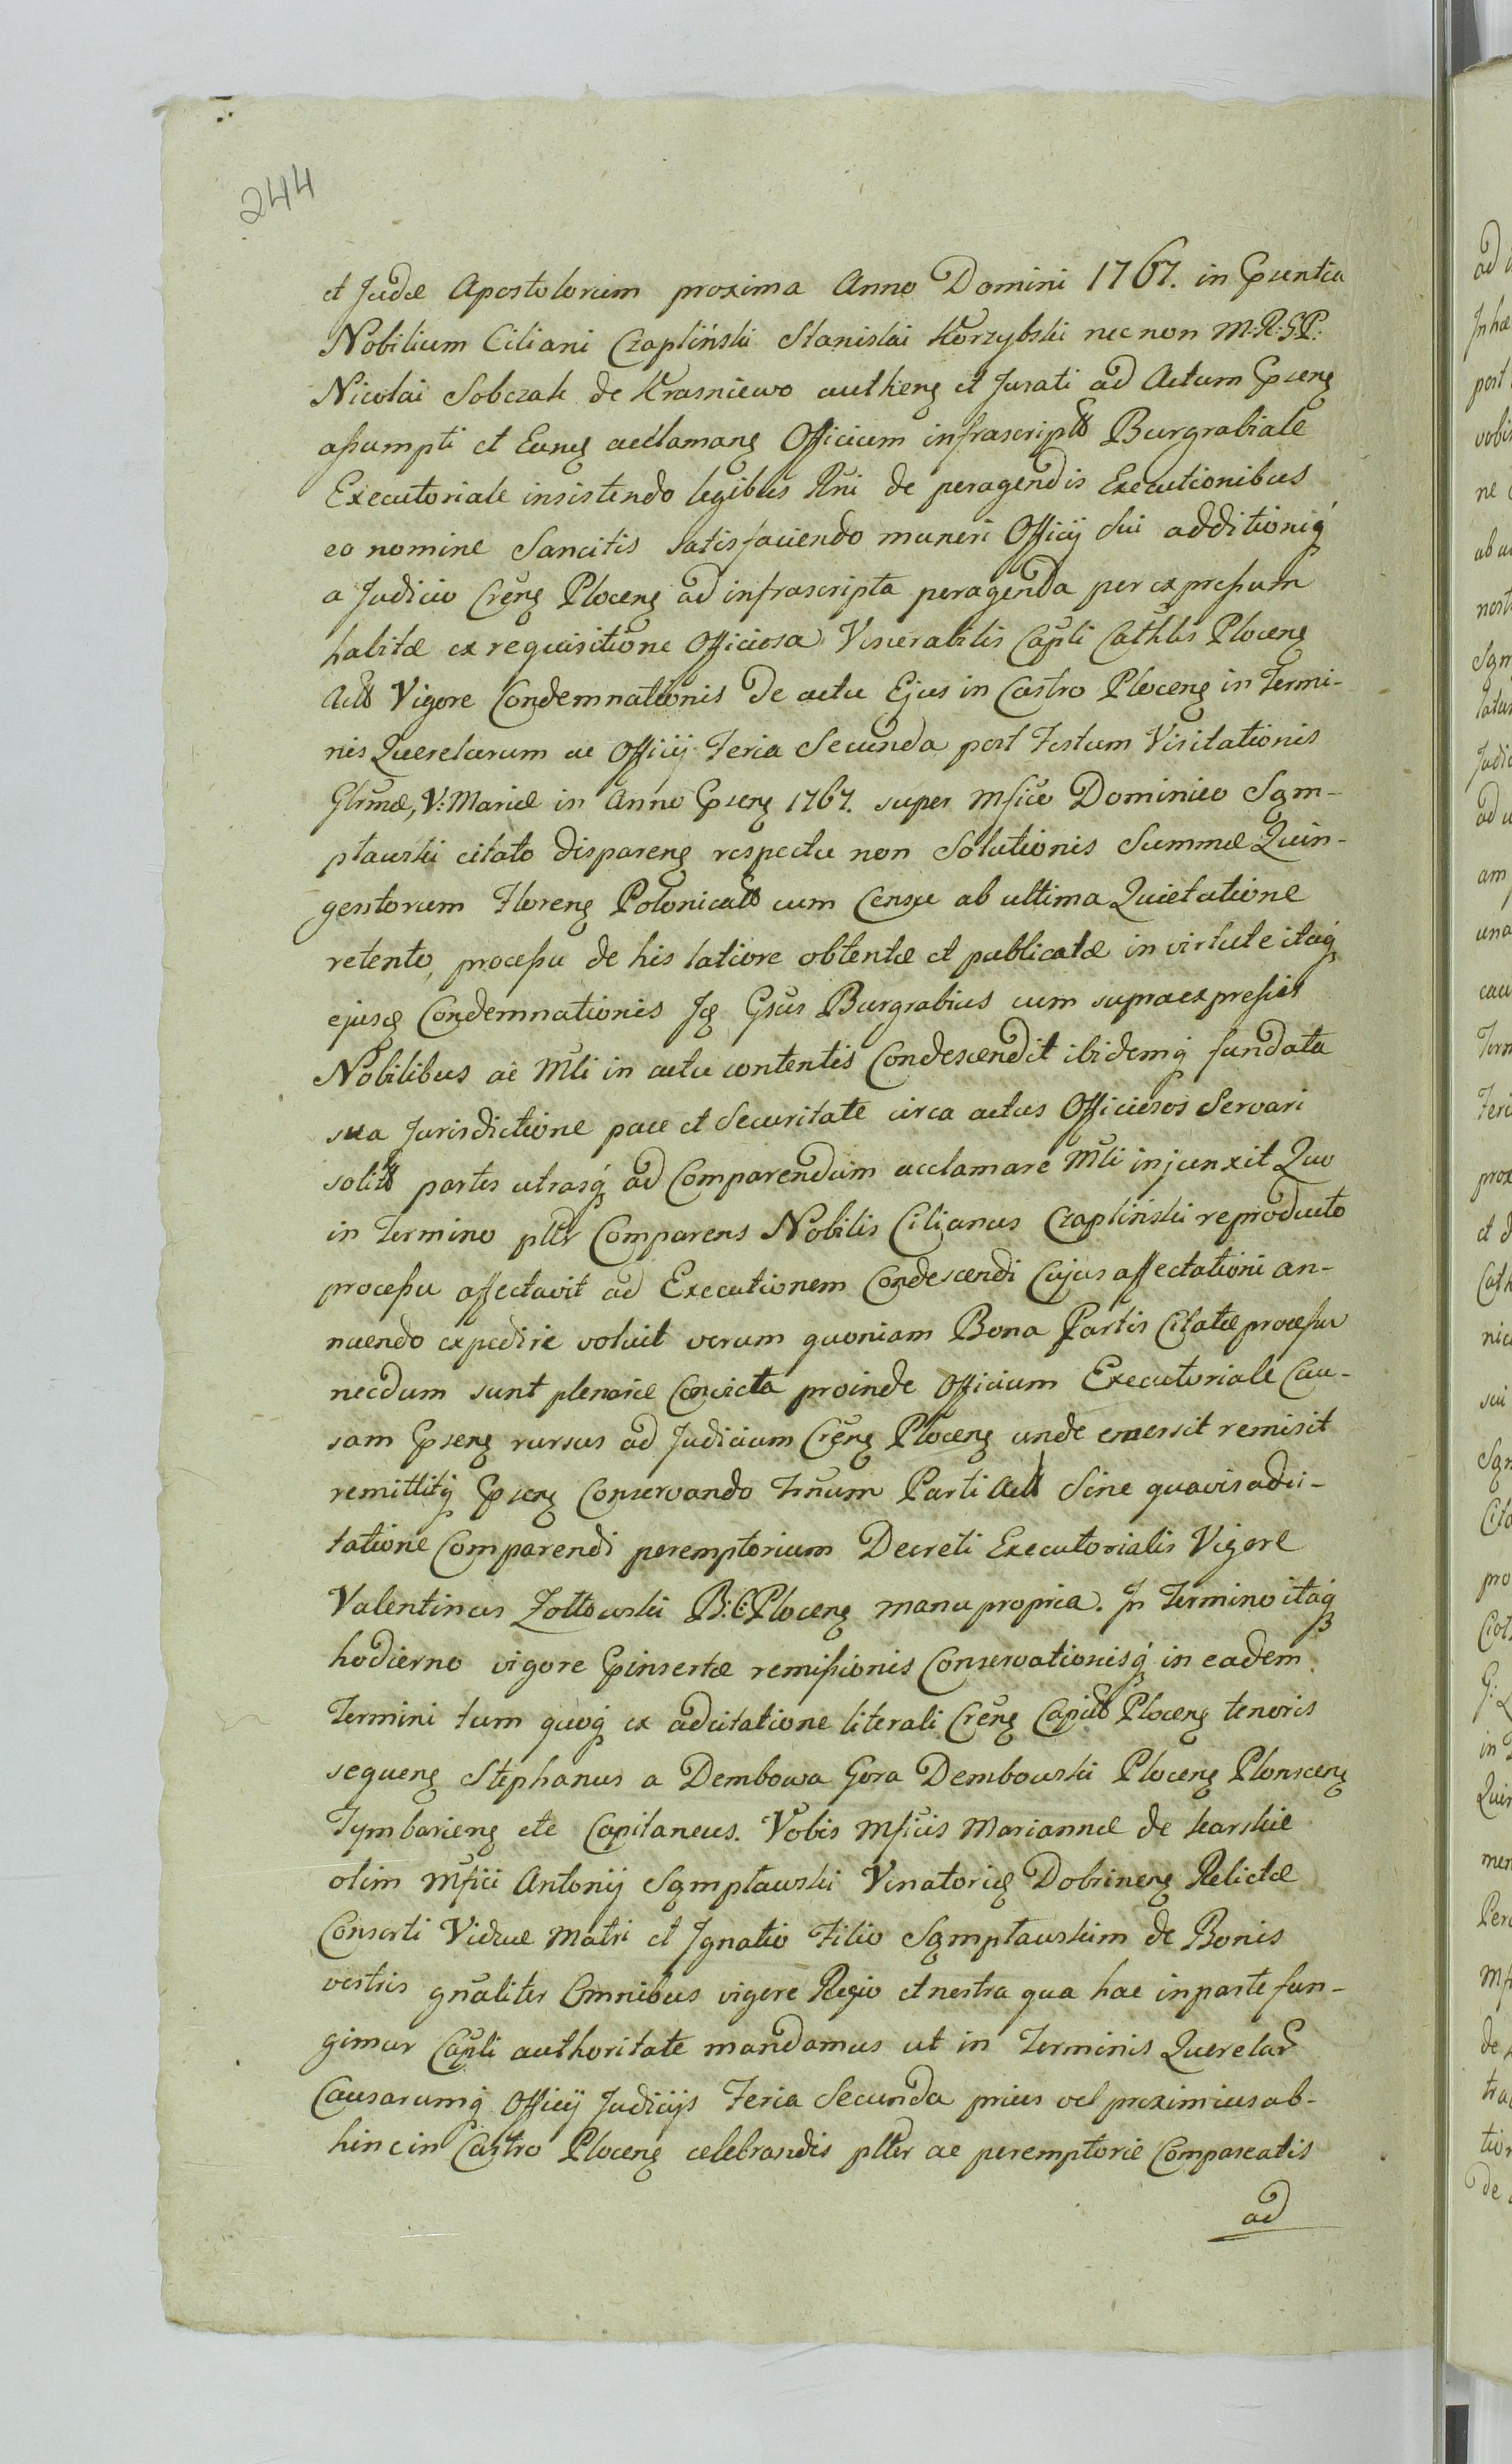 244
et Judæ Apostolorum proxima Anno Domini 1767. in Pſsentia
Nobilium Ciliani Czapliński Stanislai Korzybski nec non M:R:G:P:
Nicolai Sobczak de Krasniewo authenꝫ et Jurati ad Actum Pſsenꝫ
aßumpti et Eunꝫ acclamanꝫ Officium infrascriptꝝ Burgrabiale
Executoriale insistendo legibus Rni de peragendis Executionibus
eo nomine Sancitis satisfaciendo muneri Officij sui additioniq́
a Judicio Crenꝫ Plocenꝫ ad infrascripta peragenda per expreßum
habitæ ex requisitione Officiosa Venerabilis Capli Cathlis Plocenꝫ
Actꝝ Vigore Condemnationis de actu Ejus in Castro Plocenꝫ in Termi-
nis Querelarum ac Officij Feria Secunda post Festum Visitationis
Glrmæ, V: Mariæ in Anno Pſsenꝫ 1767. super Mfico Dominico Sgm-
ptawski citato disparenꝫ respectu non Solutionis Summæ Quin-
gentorum Florenꝫ Polonicalꝝ cum Censu ab ultima Quietatione
retento, proceßu de his latiore obtentæ et publicatæ in virtute itaq́
ejusꝫ Condemnationis Iꝫ Gsus Burgrabius cum supraexpreßis
Nobilibus ac Mli in actu contentis Condescendit ibidemq́ fundata
sua Jurisdictione pace et Securitate circa actus Officiosos Servari
solitꝝ partes utrasq́ ad Comparendum acclamare Mli injunxit Quo
in Termino pltr Comparens Nobilis Cilianus Czapliński reproducto
proceßu affectavit ad Executionem Condescendi Cujus affectationi an-
nuendo expedire voluit verum quoniam Bona Partis Citatæ proceßu
necdum sunt plenarie Convicta proinde Officium Executoriale Cau-
sam Pſsenꝫ rursus ad Judicium Crenꝫ Plocenꝫ unde emersit remisit
remittitq́ Pſsenꝫ Conservando Trnum Parti Actꝝ Sine quavis adci-
tatione Comparendi peremptorium Decreti Executorialis Vigore
Valentinus Zołtowski B:C:Plocenꝫ manu propria. In Termino itaq́
hodierno vigore Pſinsertæ remißionis Conservationisq́ in eadem
Termini tum quoq́ ex adcitatione literali Crenꝫ Capitꝝ Plocenꝫ tenoris
sequenꝫ Stephanus a Dembowa Gora Dembowski Plocenꝫ Plonscenꝫ
Tymbarienꝫ etc Capitaneus. Vobis Mficis Mariannæ de Karskie
olim Mfici Antonij Sgmptawski Venatoriꝫ Dobrinenꝫ Relictæ
Consorti Viduæ Matri et Ignatio Filio Sgmptawskim de Bonis
vestris gnaliter Omnibus vigore Regio et nostra qua hac in parte fun-
gimur Capli authoritate mandamus ut in Terminis Querelaꝝ
Causarumq́ Officij Judicijs Feria Secunda prius vel proximius ab-
hinc in Castro Plocenꝫ celebrandis plter ac peremptorie Compareatis
ad